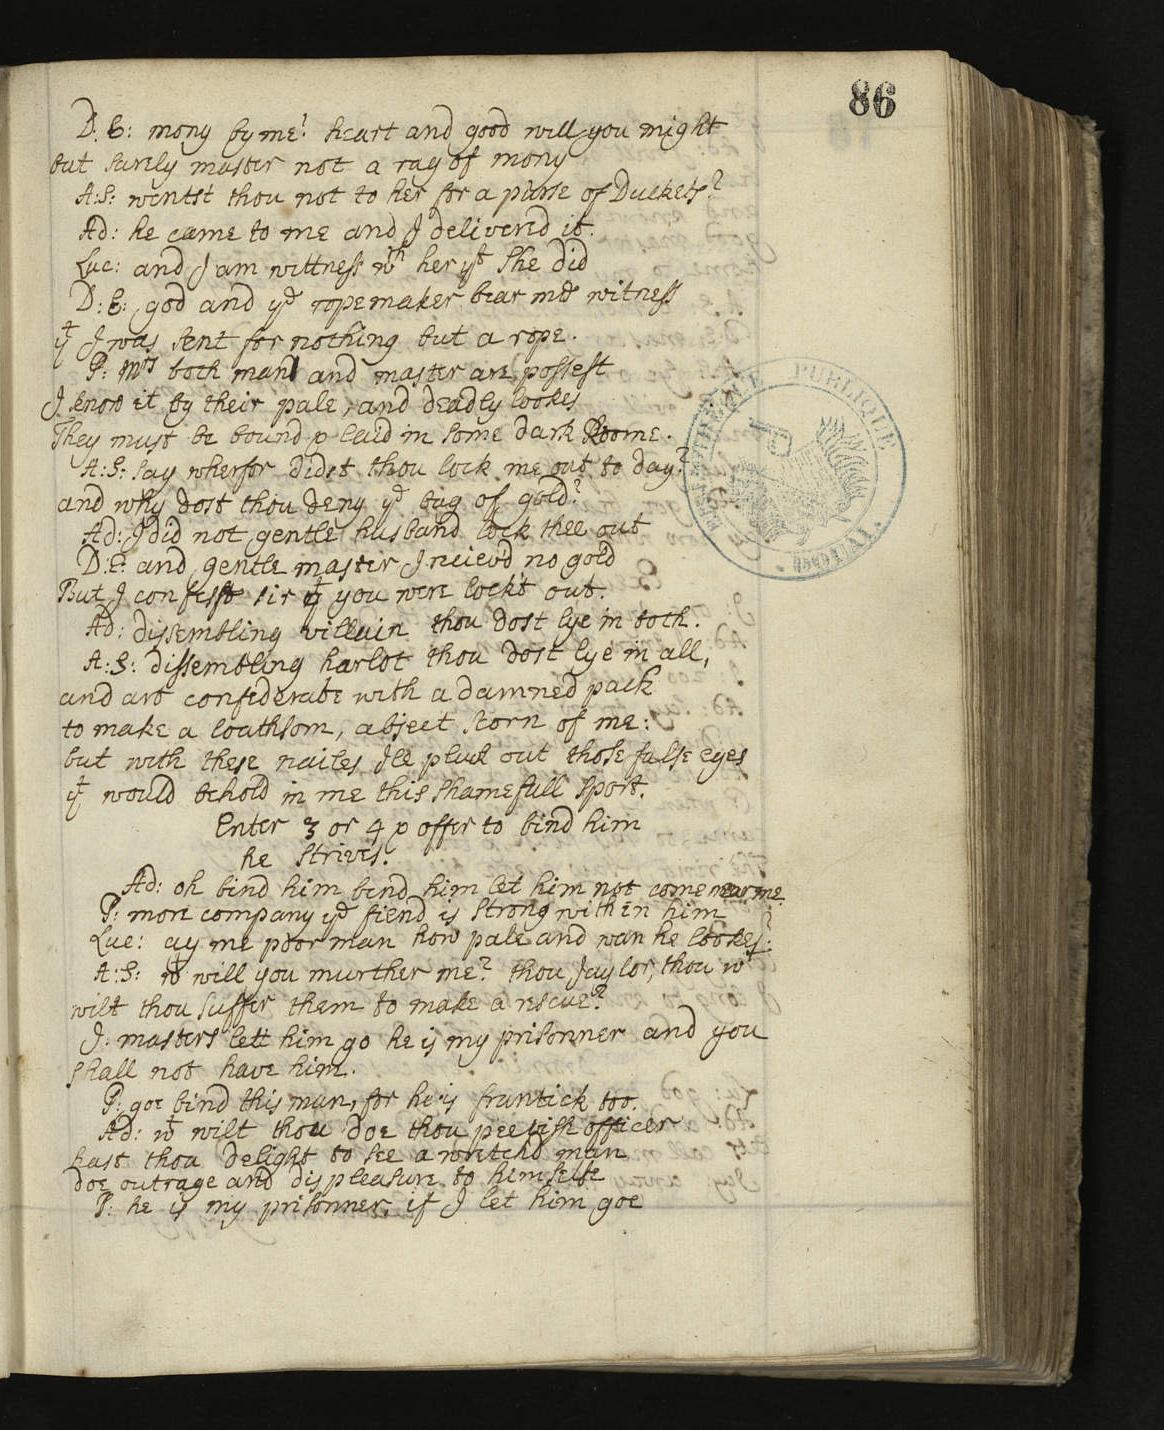 86
D: E: mony by me? heart and good will you might
but surely master not a rag of mony
A: S: wentst thou not to her for a purse of Duckets?
Ad: he came to me and I deliverd it.
Luc: and I am wittness wth her yt she did
D: E: god and ye ropemaker bear me witness
yt I was sent for nothing but a rope.
P: Mrs both man and master are possest
I know it by their pale, and deadly lookes
They must be bound & laid in some dark Roome.
A: S: say wherfor didst thou lock me out to day?
and why dost thou deny ye bag of gold?
Ad: I did not gentle husband lock thee out
D: E: and gentle master I recievd no gold
But I confesst sir yt you were lockt out.
Ad: dissembling villain thou dost lye in both.
A: S: dissembling harlot thou dost lye in all,
and art confederate with a damned pack
to make a loathsom, abject scorn of me:
but with these nailes Ile pluck out those false eyes
yt would behold in me this shamefull sport.
Enter 3 or 4 & offer to bind him
he strives.
Ad: oh bind him bind him let him not come near me
P: more company ye fiend is strong within him
Luc: ay me poor man how pale and wan he lookes?
A: S: wt will you murther me? thou Jaylor, thou wt
wilt thou suffer them to make a rescue?
J: masters lett him go he is my prisonner and you
shall not have him.
P: goe bind this man, for he is frantick too.
Ad: wt wilt thou doe thou peevish officer
hast thou delight to see a wretchd man
doe outrage and displeasure to himselfe
P: he is my prisonner, if I let him goe
BIBLIOTHEQUE PUBLIQUE